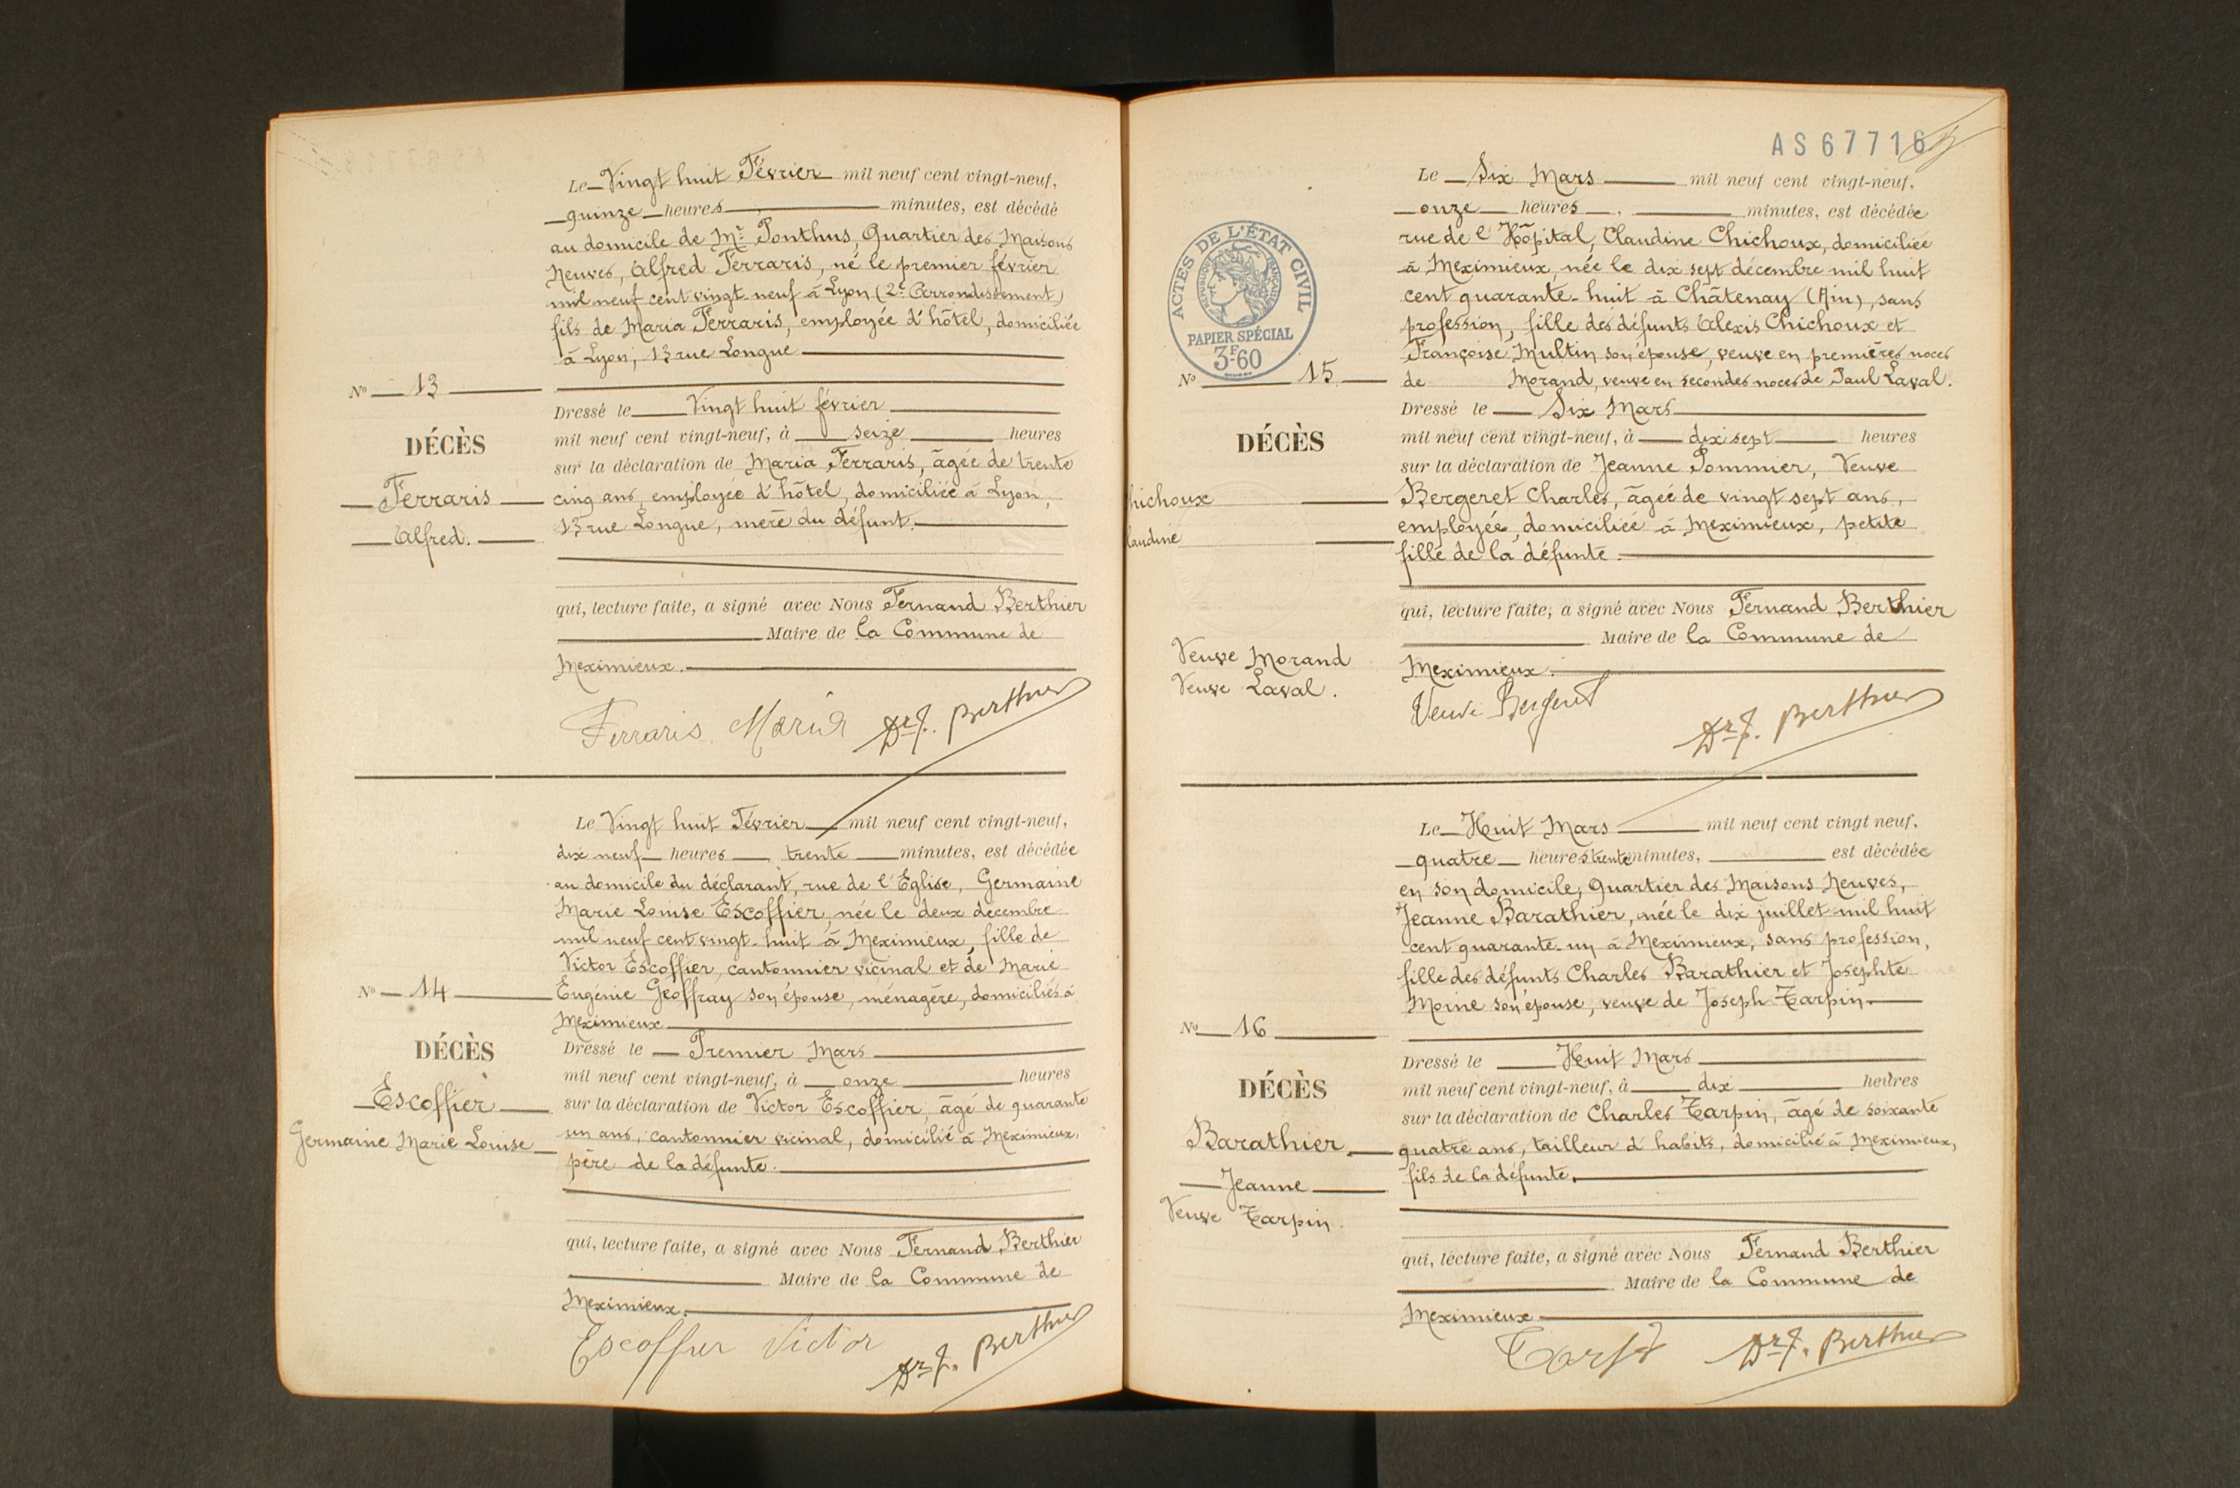 Le Vingt huit Février mil neuf cent vingt-neuf,
quinze heures minutes, est décédé
au domicile de Mr Ponthus, Quartier des Maisons
Neuves, Alfred Ferraris, né le premier février
mil neuf cent vingt-neuf à Lyon (2e Arrondissement)
fils de Maria Ferraris, employée d'hôtel, domiciliée
à Lyon, 13 rue Longue
No 13
Dressé le Vingt huit février
mil neuf cent vingt-neuf, à seize heures
DÉCÈS
sur la déclaration de Maria Ferraris, âgée de trente
Ferraris
cinq ans, employée d'hôtel, domiciliée à Lyon,
13 rue Longue, mère du défunt.
Alfred.
qui, lecture faite, a signé avec Nous Fernand Berthier
Maire de la Commune de
Meximieux.
Ferraris Maria Dr F. Berthier
Le Vingt huit Février mil neuf cent vingt-neuf,
dix neuf heures trente minutes, est décédée
au domicile du déclarant, rue de l'Eglise, Germaine
Marie Louise Escoffier, née le deux décembre
mil neuf cent vingt-huit à Meximieux, fille de
Victor Escoffier, cantonnier vicinal et de Marie
No 14
Eugénie Geoffray son épouse, ménagère, domiciliés à
Meximieux
DÉCÈS
Dressé le Premier Mars
mil neuf cent vingt-neuf, à onze heures
Escoffier
sur la déclaration de Victor Escoffier, âgé de quarante
Germaine Marie Louise
un ans, cantonnier vicinal, domicilié à Meximieux,
père de la défunte.
qui, lecture faite, a signé avec Nous Fernand Berthier
Maire de la Commune de
Meximieux.
Escoffier Victor Dr F. Berthier
AS 67716
Le Six Mars mil neuf cent vingt-neuf,
onze heures, minutes, est décédée
rue de l'Hôpital, Claudine Chichoux, domiciliée
à Meximieux, née le dix sept décembre mil huit
cent quarante-huit à Châtenay (Ain), sans
profession, fille des défunts Alexis Chichoux et
Françoise Multin son épouse, veuve en premières noces
de Morand, veuve en secondes noces de Paul Laval.
ACTES DE L'ÉTAT CIVIL
RÉPUBLIQUE FRANÇAISE
PAPIER SPÉCIAL
3F60
No 15
Dressé le Six Mars
mil neuf cent vingt-neuf, à dix sept heures
DÉCÈS
sur la déclaration de Jeanne Pommier, Veuve
hichoux
Bergeret Charles, âgée de vingt sept ans,
employée, domiciliée à Meximieux, petite
laudine
fille de la défunte.
qui, lecture faite, a signé avec Nous Fernand Berthier
Maire de la Commune de
Meximieux.
Veuve Morand
Veuve Laval.
Veuve Bergeret
Dr F. Berthier
Le Huit Mars mil neuf cent vingt neuf,
quatre heures trente minutes, est décédée
en son domicile, Quartier des Maisons Neuves,
Jeanne Barathier, née le dix juillet mil huit
cent quarante-un à Meximieux, sans profession,
fille des défunts Charles Barathier et Josephte
Moine son épouse, veuve de Joseph Tarpin
No 16
Dressé le Huit Mars
mil neuf cent vingt-neuf, à dix heures
DÉCÈS
sur la déclaration de Charles Tarpin, âgé de soixante
Barathier
quatre ans, tailleur d'habits, domicilié à Meximieux,
Jeanne
fils de la défunte.
Veuve Tarpin.
qui, lecture faite, a signé avec Nous Fernand Berthier
Maire de la Commune de
Meximieux
Dr F. Berthier